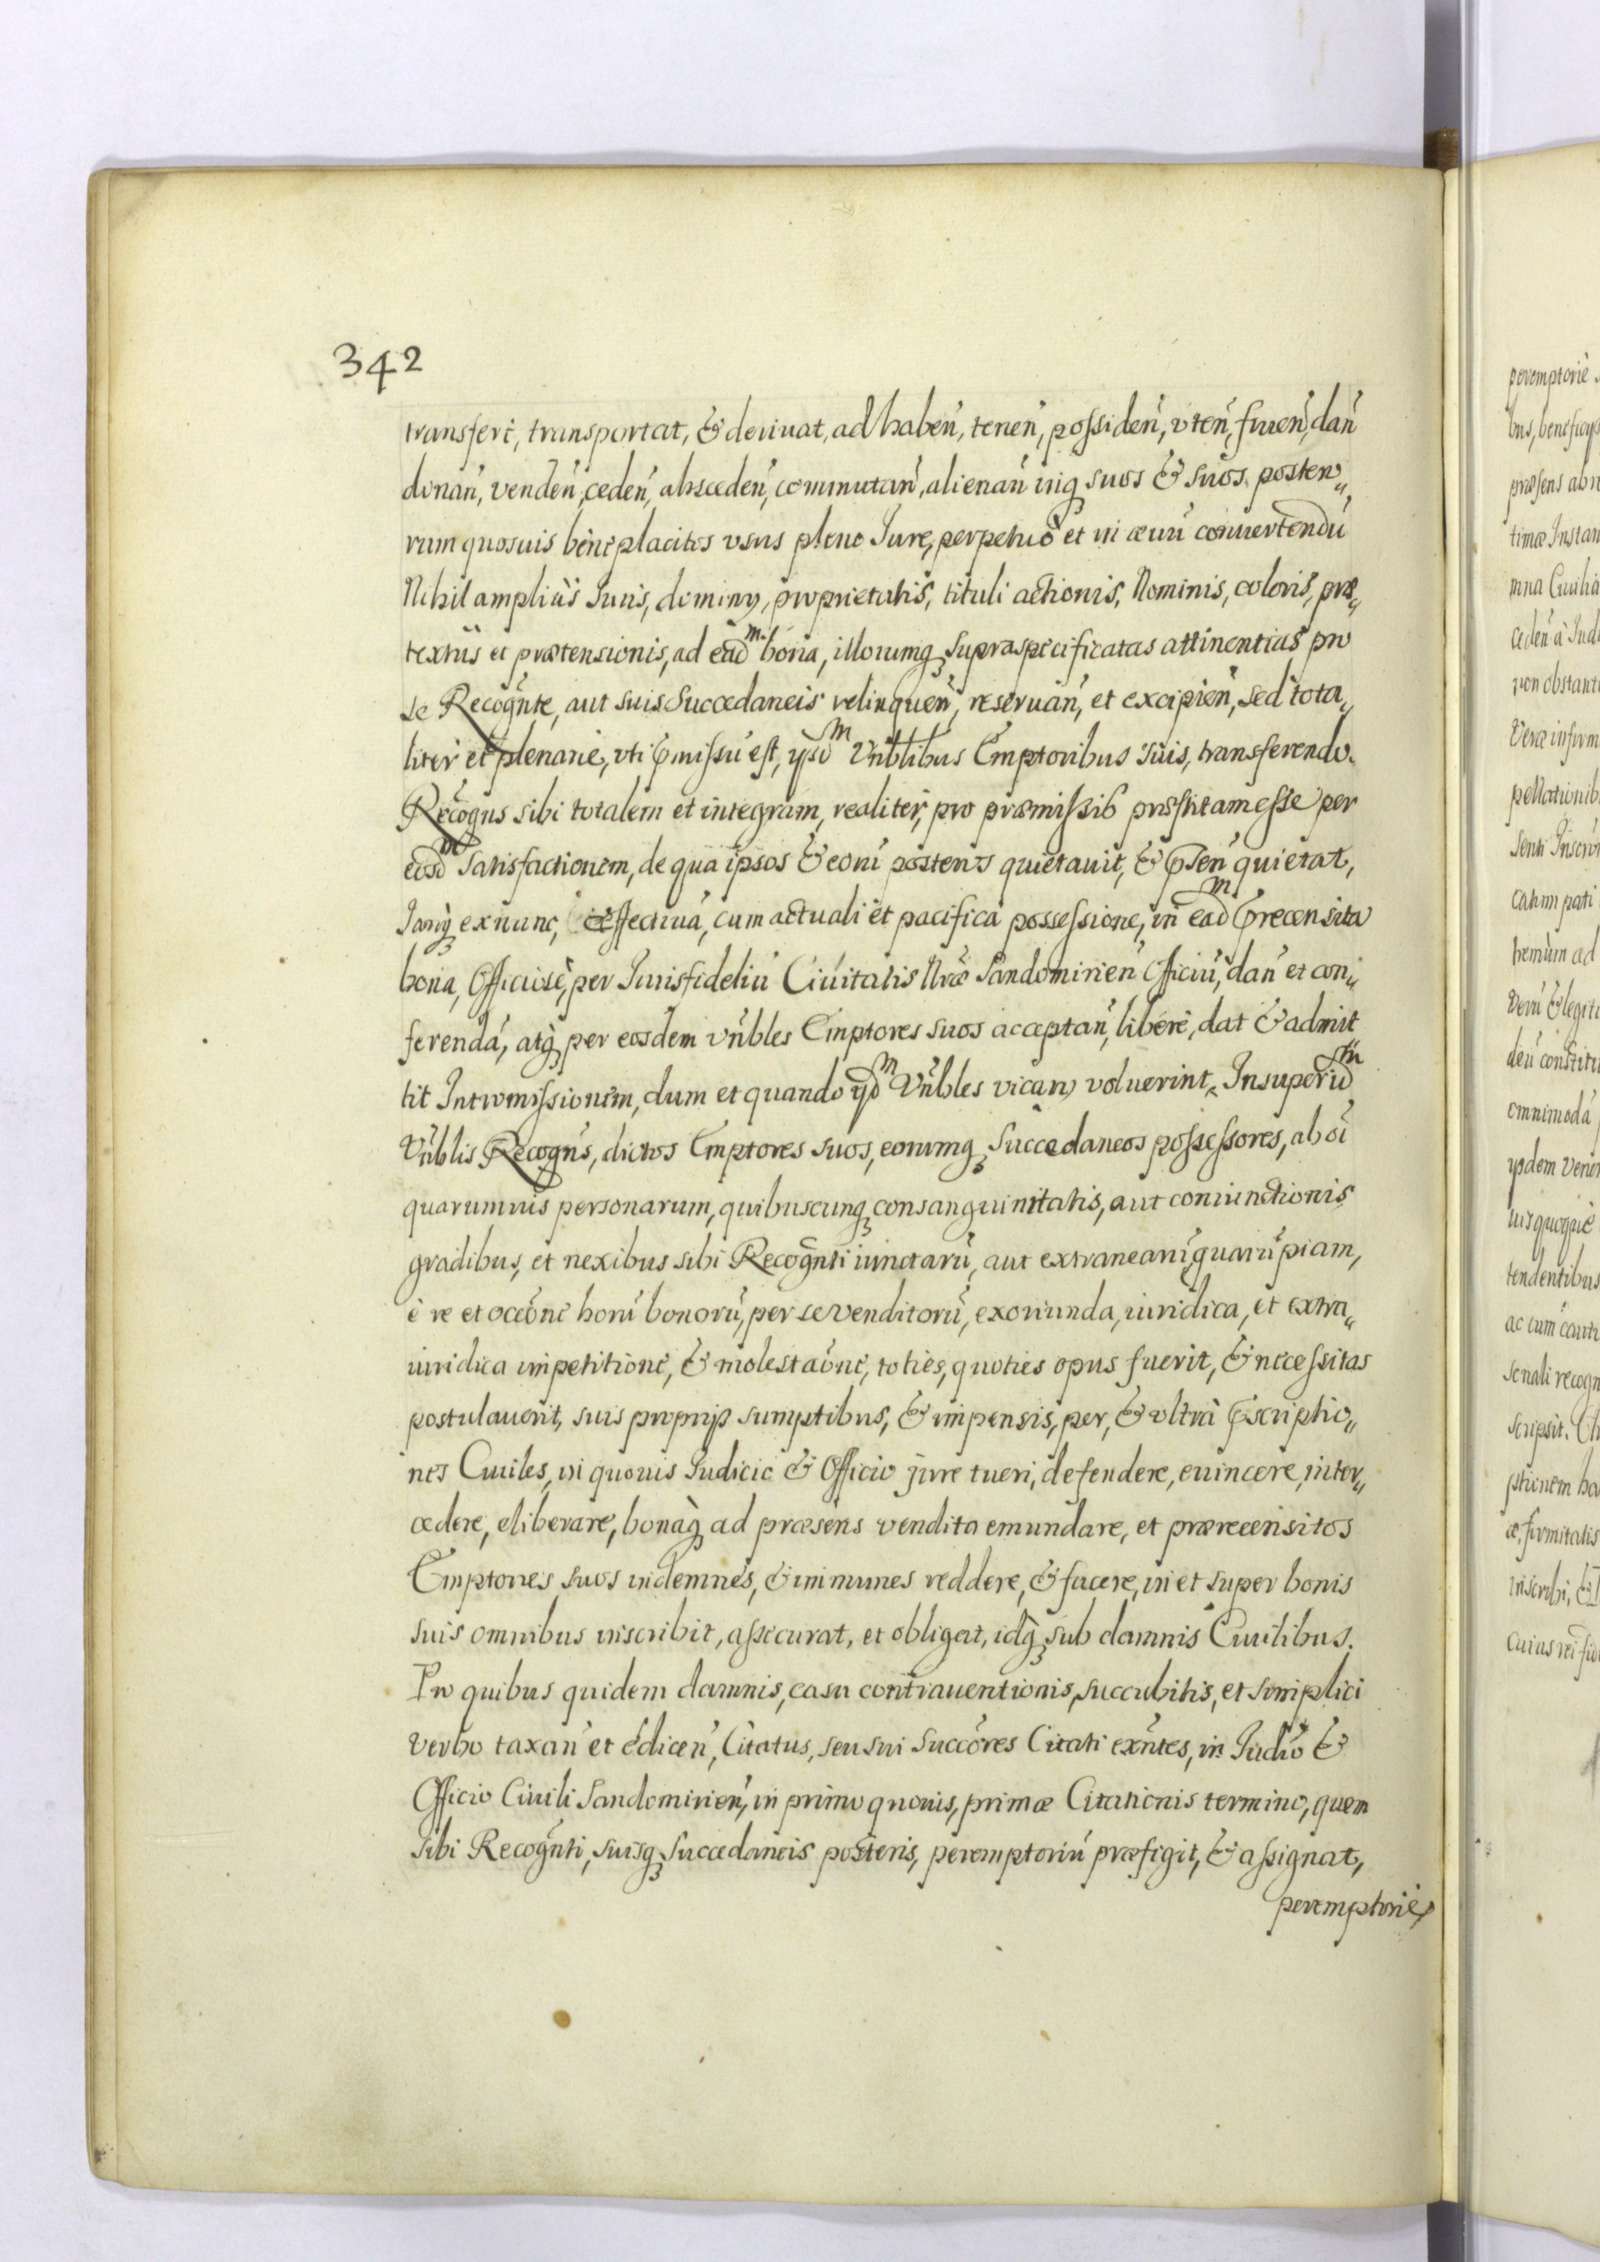 342
transfert, transportat, & deriuat, ad habeñ, teneñ, possideñ, vteñ, frueñ, dañ
donañ, vendeñ, cedeñ, abscedeñ, commutañ, alienañ inq suos & suos posteri„
rum quosuis beneplacitos vsus pleno Iure, perpetuò et in æuũ conuertendũ
Nihil ampliùs Iuris, dominy, proprietatis, tituli actionis, Nominis, coloris, præ„
textùs et prætensionis, ad ead^m bona, illorumq supraspecificatas attinentias pro
se Recogñte, aut suis Succedaneis relinqueñ, reseruañ, et excipieñ, sed tota„
liter et plenarie, vti pmissũ est, ysd^m Vñblibus Emptoribus suis, transferendo.
Recogñs sibi totalem et integram, realiter, pro præmissis præstitam esse per
eosd^m satisfactionem, de qua ipsos & eorũ posteros quietauit, & pseñ quietat,
Ianq ex nunc, effectiuã, cum actuali et pacifica possessione, in ead^m precensita
bona, Officiosè, per Iurisfideliũ Ciuitatis Nræ Sandomirieñ Officiũ, dañ et con„
ferendã, atq per eosdem vñbles Emptores suos acceptañ, liberè, dat & admit
tit Intromissionem, dum et quando yd^m Vñbles vicary voluerint. Insuper id^m
Vñblis Recogñs, dictos Emptores suos, eorumq Succedaneos possessores, ab oi
quarumuis personarum, quibuscunq consanguinitatis, aut coniunctionis
gradibus, et nexibus sibi Recogñti iunctarũ, aut extranearũ quarũpiam,
è re et occõne horũ bonorũ, per se venditorũ, exoriunda, iuridica, et extra„
iuridica impetitione, & molestaõne, toties, quoties opus fuerit, & necessitas
postulauerit, suis proprijs sumptibus, & impensis, per, & vltrà pscriptio„
nes Ciuiles, in quouis Iudicio & Officio jure tueri, defendere, euincere, inter„
cedere, eliberare, bonaq ad præsens vendita emundare, et prærecensitos
Emptores suos indemnes, & immunes reddere, & facere, in et super bonis
suis omnibus inscribit, assecurat, et obligat, idq sub damnis Ciuilibus.
Pro quibus quidem damnis, casu contrauentionis, succubitis, et simplici
verbo taxañ et ediceñ, Citatus, seu sui Succõres Citati exñtes, in Iudiõ &
Officio Ciuili Sandomirieñ, in primo quouis, primæ Citationis termino, quem
sibi Recogñti, suisq Succedaneis posteris, peremptoriũ præfigit, & assignat,
peremptoriè